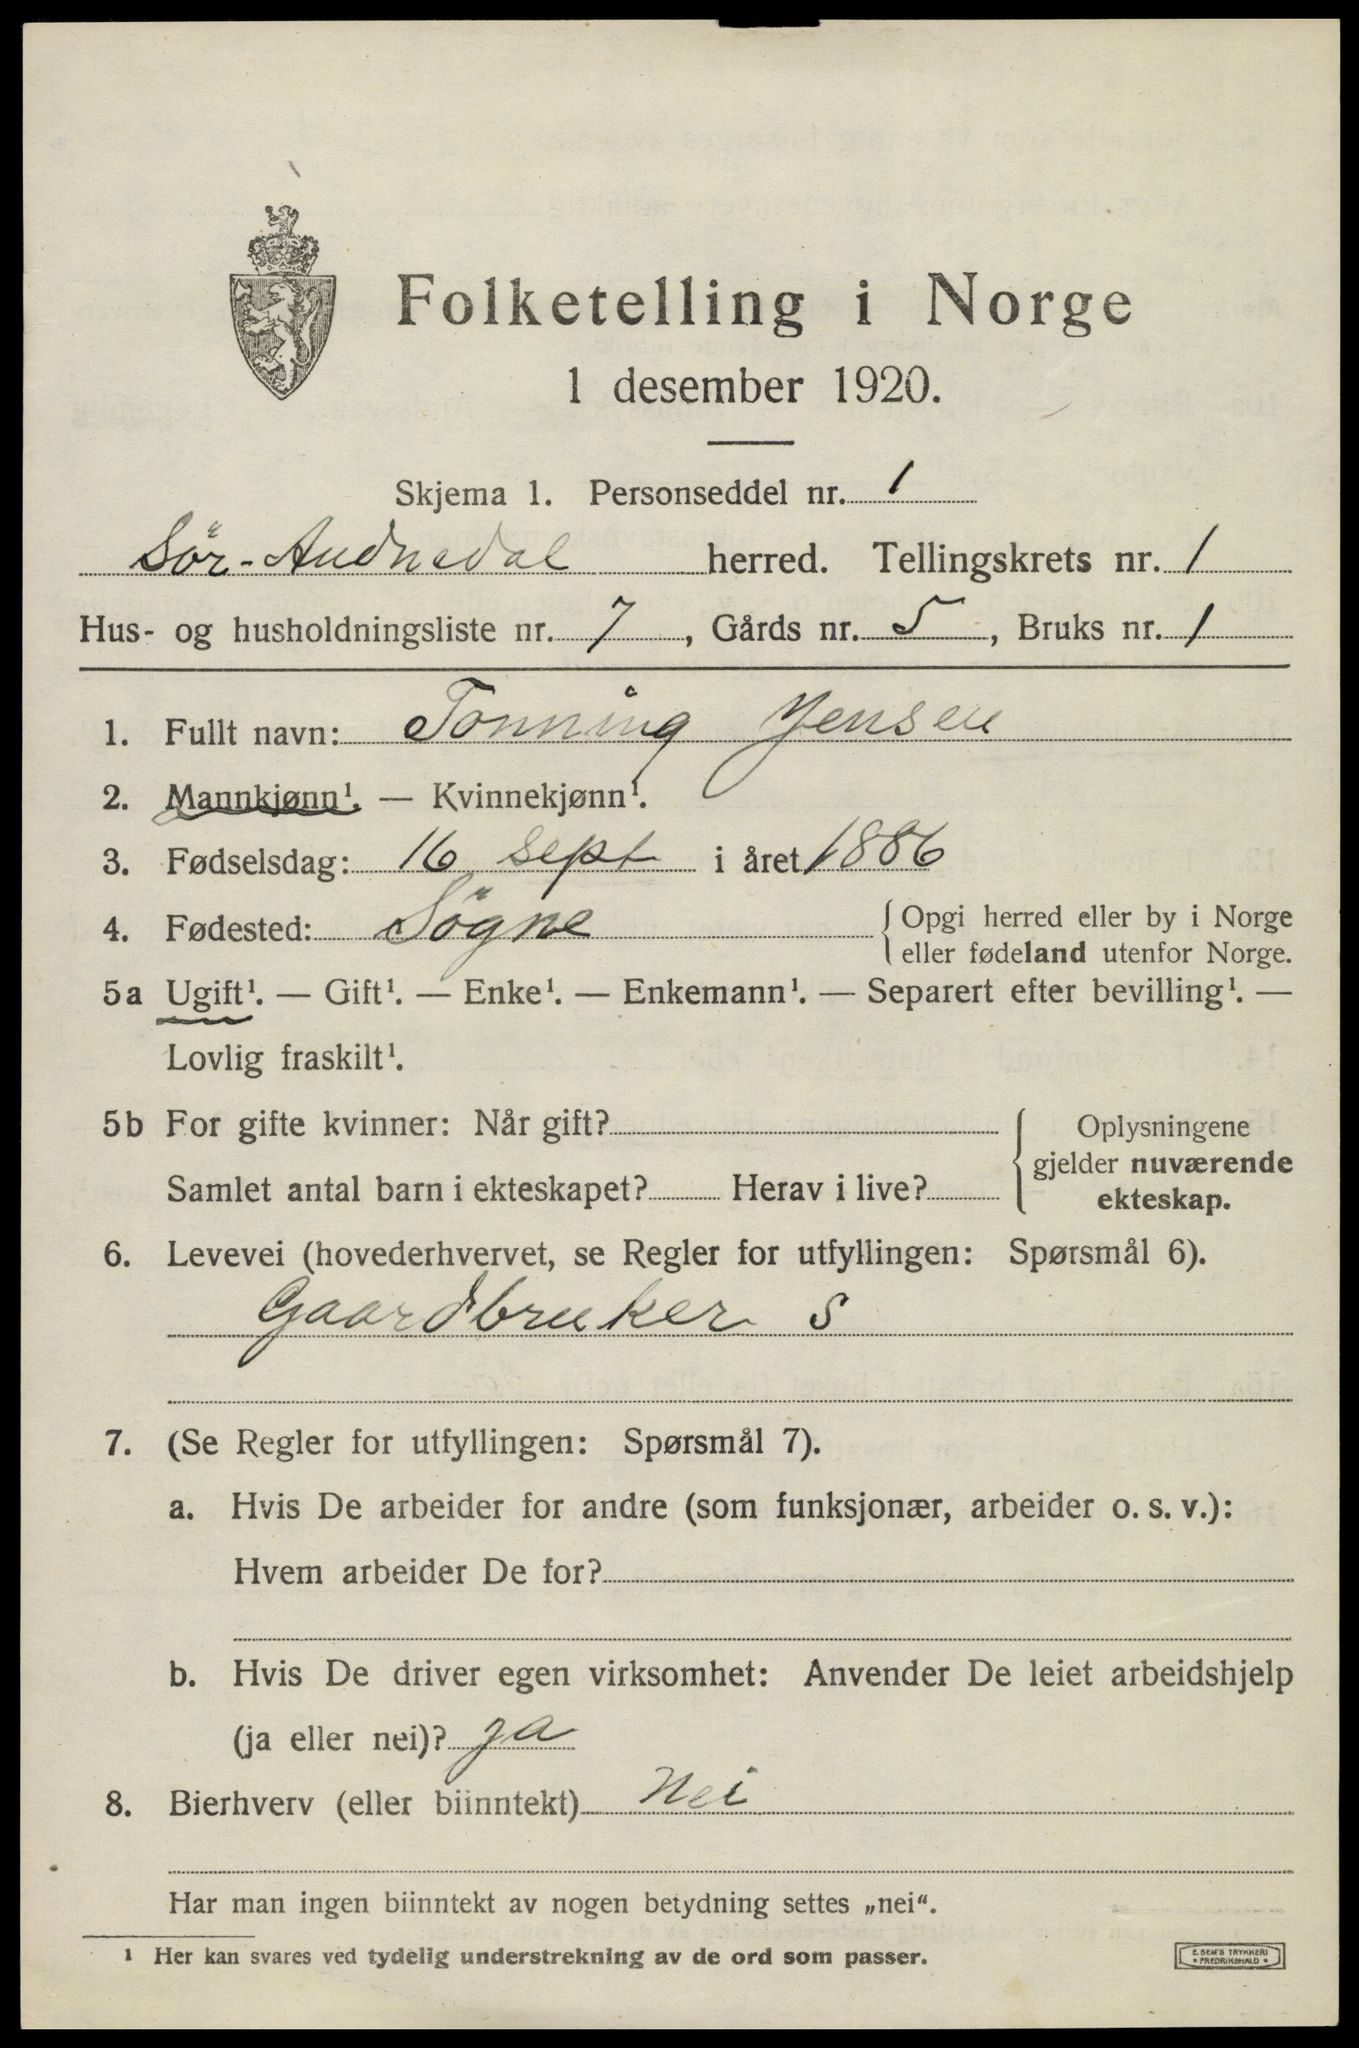 Folketelling i Norge
1 desember 1920.
Skjema 1. Personseddel nr. 1
Sör-Audnedal herred. Tellingskrets nr. 1
Hus- og husholdningsliste nr. 7, Gårds nr. 5, Bruks nr. 1
1. Fullt navn: Tönning Jensen
2. Mannkjønn¹. — Kvinnekjønn¹.
3. Fødselsdag: 16 sept i året 1886
4. Fødested: Sögne {Opgi herred eller by i Norge
eller fødeland utenfor Norge.
5a Ugift¹. — Gift¹. — Enke¹. — Enkemann¹. — Separert efter bevilling¹. —
Lovlig fraskilt¹.
5b For gifte kvinner: Når gift? Oplysningene
gjelder nuværende
Samlet antal barn i ekteskapet? Herav i live? ekteskap.
6. Levevei (hovederhvervet, se Regler for utfyllingen: Spørsmål 6).
Gaardbruker S
7. (Se Regler for utfyllingen: Spørsmål 7).
a. Hvis De arbeider for andre (som funksjonær, arbeider o. s. v.):
Hvem arbeider De for?
b. Hvis De driver egen virksomhet: Anvender De leiet arbeidshjelp
(ja eller nei)? ja
8. Bierhverv (eller biinntekt) Nei
Har man ingen biinntekt av nogen betydning settes „nei“.
¹ Her kan svares ved tydelig understrekning av de ord som passer.
E. SEM'S TRYKKERI
* FREDRIKSHALD *